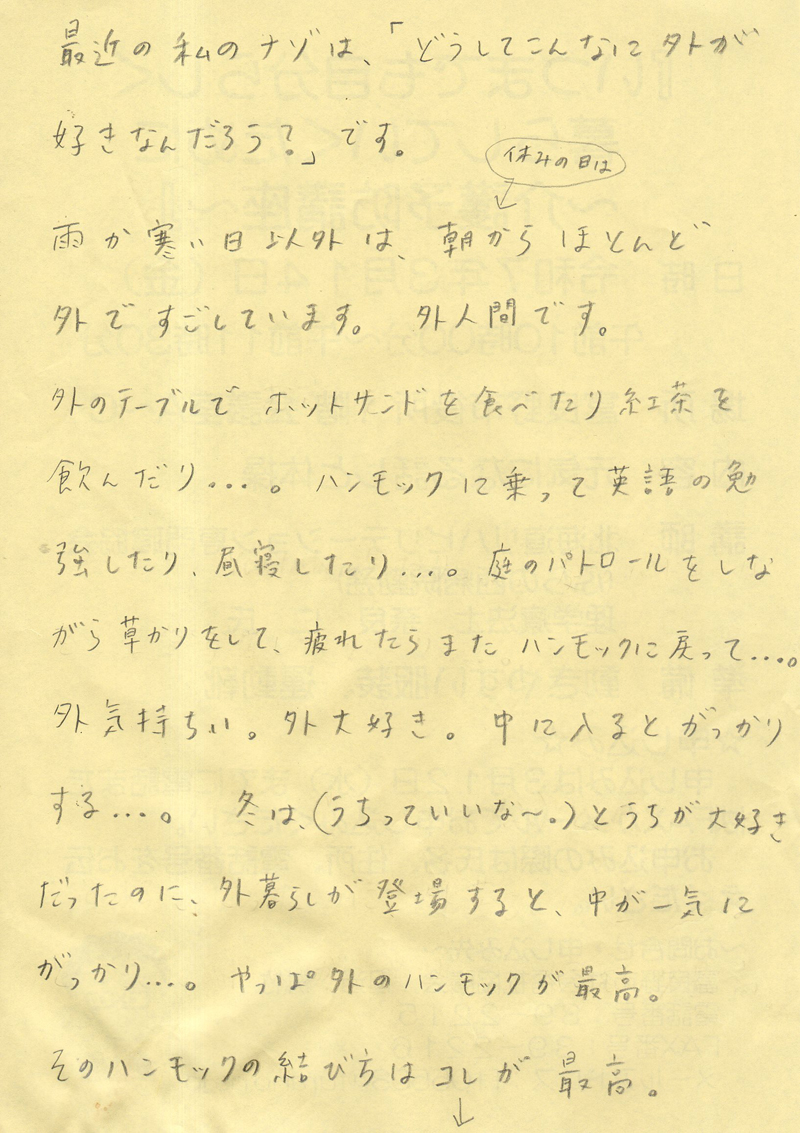 最近の私のナゾは、「どうしてこんなに外が
好きなんだろう?」です。
休みの日は
雨か寒い日以外は、朝からほとんど
外ですごしています。 外人間です。
外のテーブルでホットサンドを食べたり紅茶を
飲んだり...。ハンモックに乗って英語の勉
強したり、昼寝したり...。庭のパトロールをしな
がら草かりをして、疲れたらまたハンモックに戻って....。
外気持ちいい。外大好き。中に入るとがっかり
する...。 冬は、(うちっていいな〜。)とうちが大好き
だったのに、外暮らしが登場すると、中が一気に
がっかり...。やっぱ外のハンモックが最高。
そのハンモックの結び方はコレが最高。